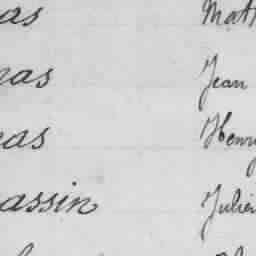 as Mat
nas Jean
eas Henry
assin Julien